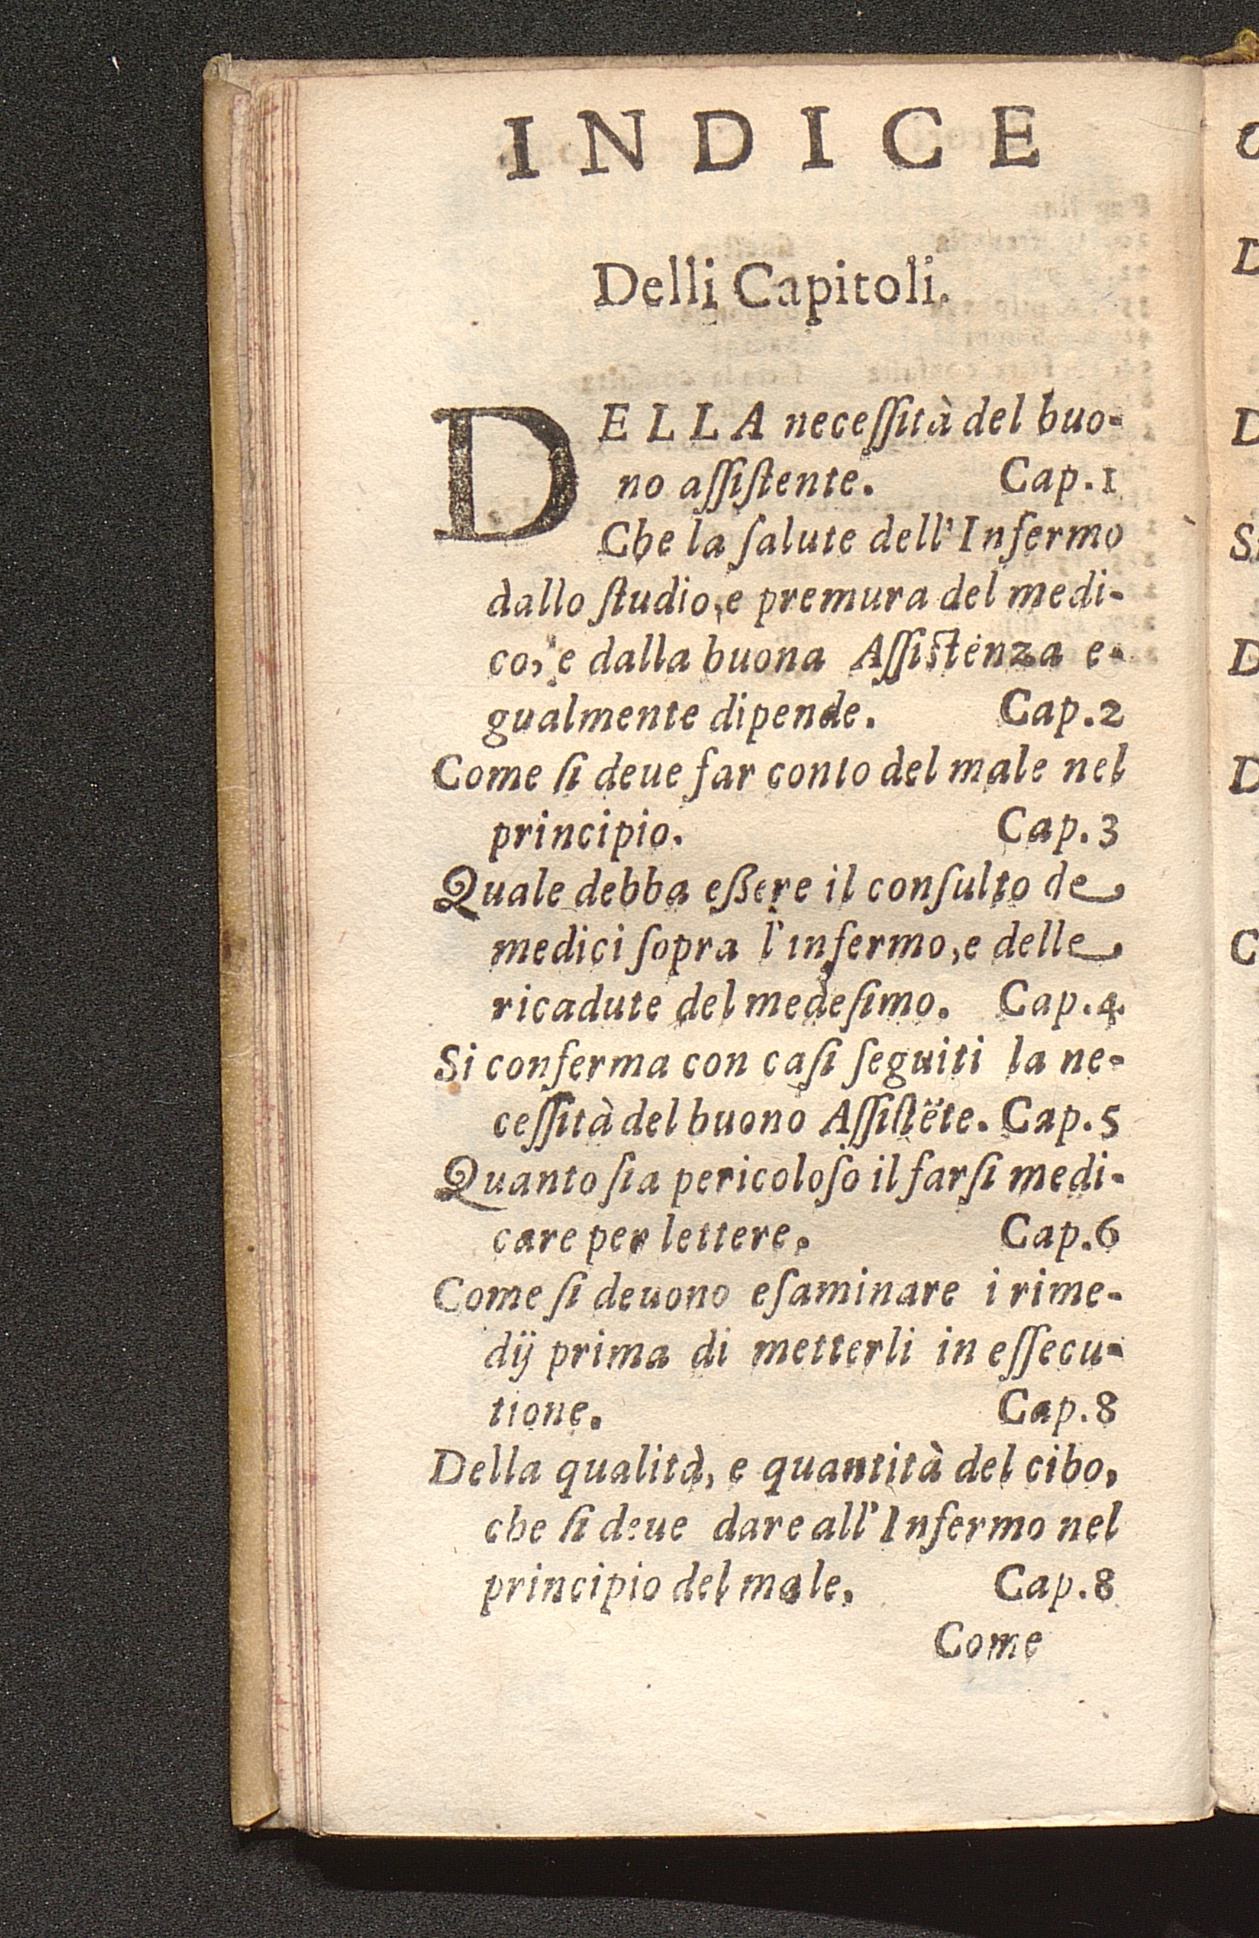 INDICE
Delli Capitoli.
DELLA neceſſità del buo-
no aſſiſtente. Cap.1
Che la ſalute dell'Infermo
dallo ſtudio, e premura del medi-
co, e dalla buona Aſſiſtenza e-
gualmente dipende. Cap.2
Come ſi deue far conto del male nel
principio. Cap.3
Quale debba eßere il conſulto de
medici ſopra l'infermo, e delle
ricadute del medeſimo. Cap.4.
Si conferma con caſi ſeguiti la ne-
ceſſità del buono Aſſiſtẽte. Cap.5
Quanto ſia pericoloſo il farſi medi-
care per lettere. Cap.6
Come ſi deuono eſaminare i rime-
dij prima di metterli in eſſecu-
tione. Cap.8
Della qualità, e quantità del cibo,
che ſi deue dare all'Infermo nel
principio del male. Cap.8
Come